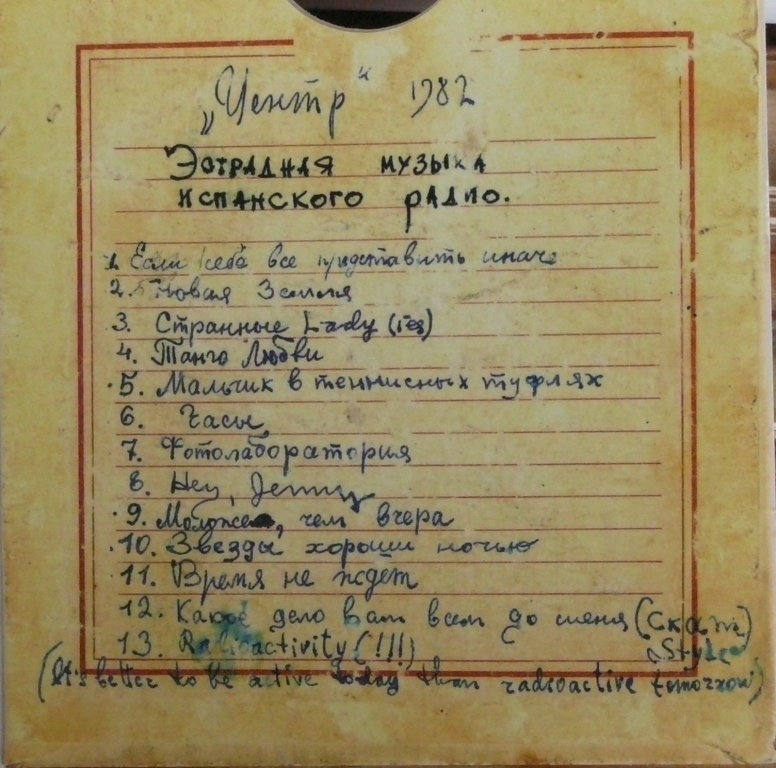 „Центр“ 1982
Эстрадная музыка
испанского радио.
1. Если себе все представить иначе
2. Новая Земля
3. Странные Lady
4. Танго Любви
5. Мальчик в теннисных туфлях
6. Часы
7. Фотолаборатория
8. Hey, Jenny
9. Моложе, чем вчера
10. Звезды хороши ночью
11. Время не ждет
12. Какое дело вам всем до меня (Скат
13. Radioactivity (!!!) Style)
(It's better to be active today than radioactive tomorrow)